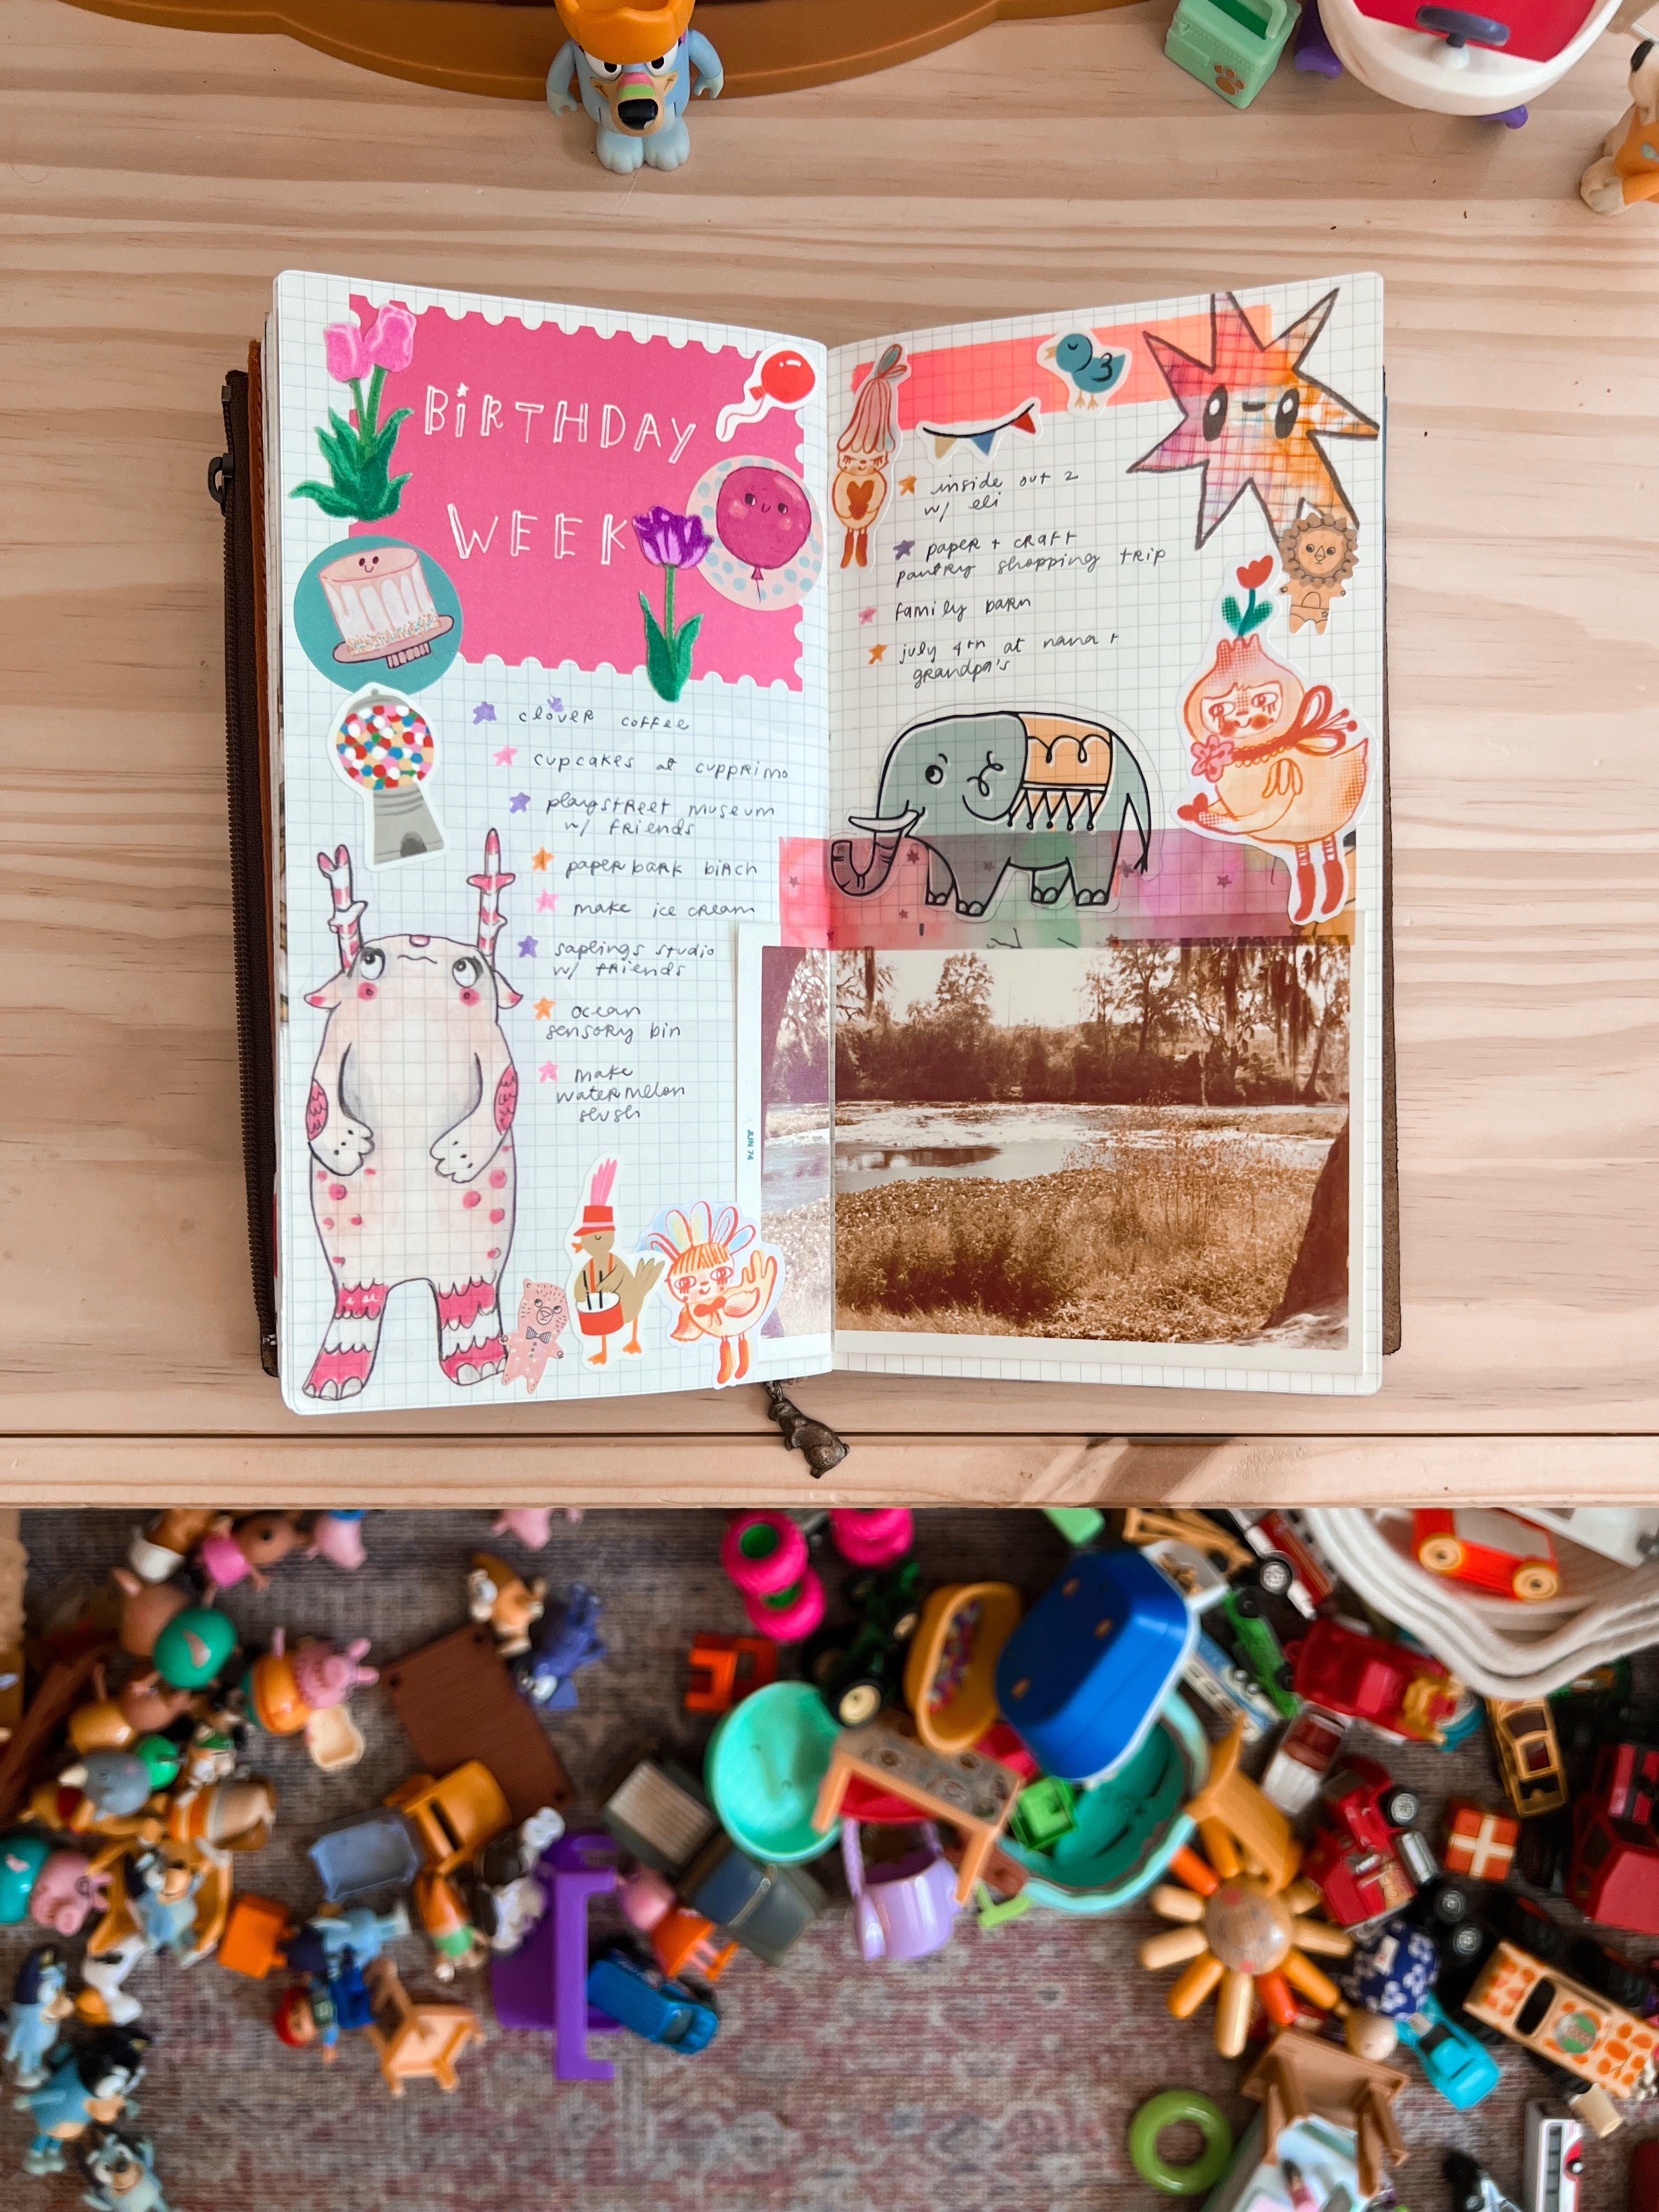 BiRTHDAY
WEEK
clover coffee
cupcakes at cupprimo
playstreet museum
w/ friends
paper bark birch
make ice cream
saplings studio
w/ friends
ocean
sensory bin
make
watermelon
slush
JUN 74
inside out 2
w/ eli
paper + craft
pantry shopping trip
family barn
july 4th at nana +
grandpa's